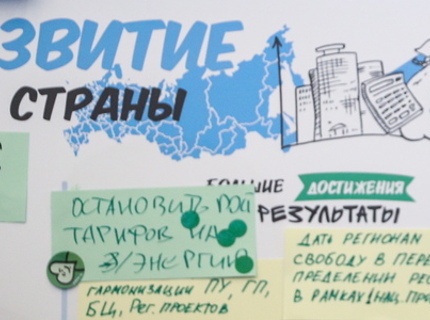 ЗВИТИЕ
СТРАНЫ
БОЛЬШИЕ ДОСТИЖЕНИЯ
РЕЗУЛЬТАТЫ
ОСТАНОВИТЬ
ТАРИФОВ НА
Э/ЭНЕРГИЮ
ГАРМОНИЗАЦИИ ПУ, ГП,
БЦ, РЕГ. ПРОЕКТОВ
ДАТЬ РЕГИОНАМ
СВОБОДУ В ПЕРЕ
ПРЕДЕЛЕНИИ РЕС
В РАМКАХ НАЦ. ПРО